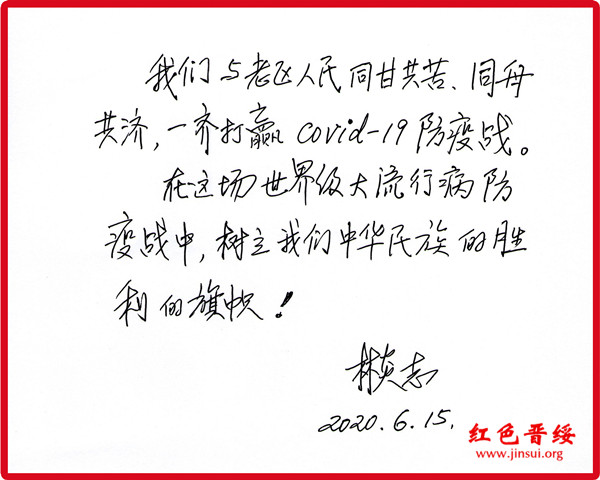 我们与老区人民同甘共苦、同舟
共济,一齐打赢 covid-19 防疫战。
在这场世界级大流行病防
疫战中,树立我们中华民族的胜
利的旗帜!
林炎志
2020.6.15.
红色晋绥
www.jinsui.org